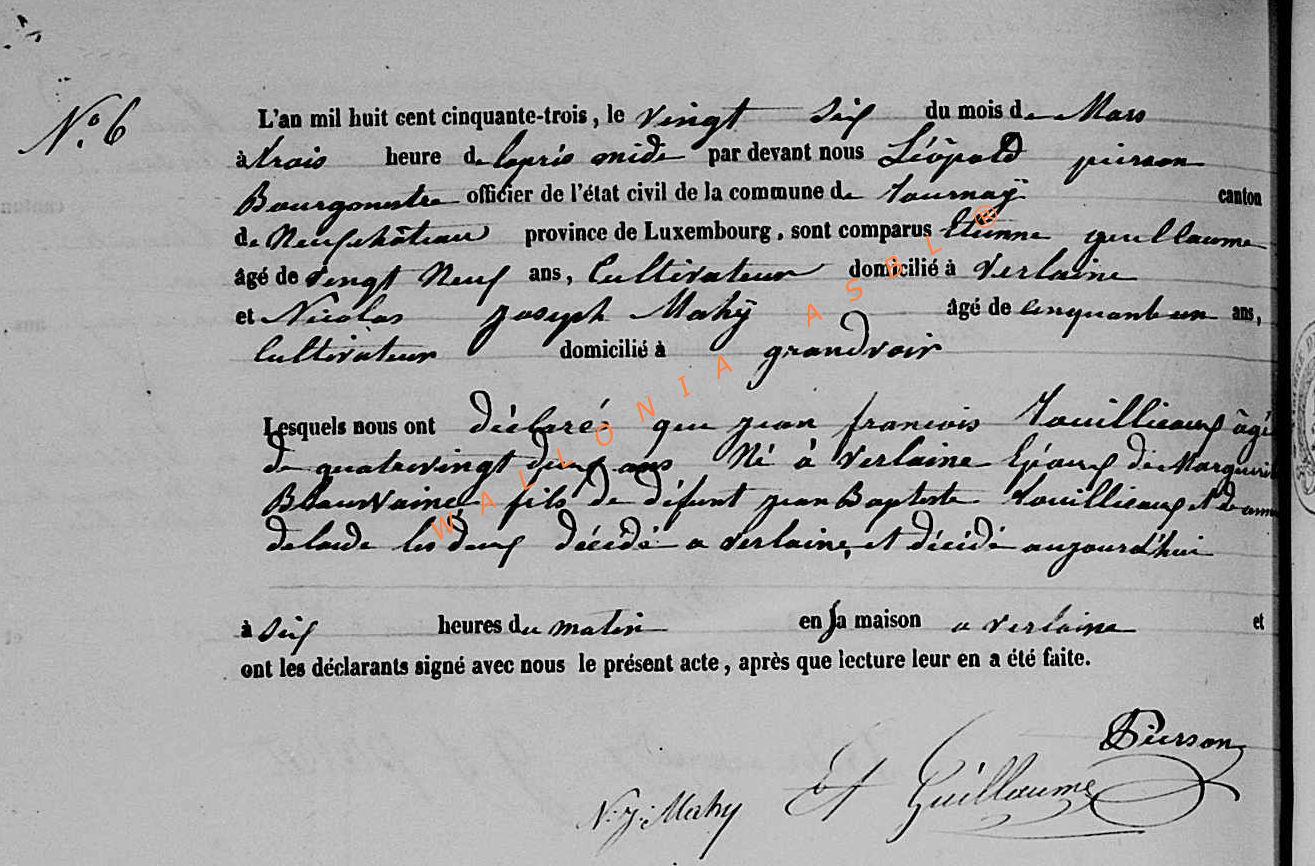 N.º 6
L'an mil huit cent cinquante-trois, le vingt Six du mois de Mars
à trois heure de laprés midi par devant nous Léopold pierson
Bourgmestre officier de l'état civil de la commune de tournaÿ canton
de Neufchâteau province de Luxembourg, sont comparus Etienne guillaume
âgé de vingt Neuf ans, Cultivateur domicilié à Verlaine
et Nicolas joseph Mahÿ âgé de cinquante un ans,
Cultivateur domicilié à grandvoir
Lesquels nous ont déclaré que jean francois touillieaux âgé
de quatrevingt deux ans Né à Verlaine Epoux de
fils de défunt jean Baptiste touillieaux et de anne
les deux décédé a Verlaine, et décédé aujourd'hui
à Six heures du matin en Sa maison a verlaine et
ont les déclarants signé avec nous le présent acte, après que lecture leur en a été faite.
Pierson
N. J. Mahy Et Guillaume
WALLONIA ASBL ®